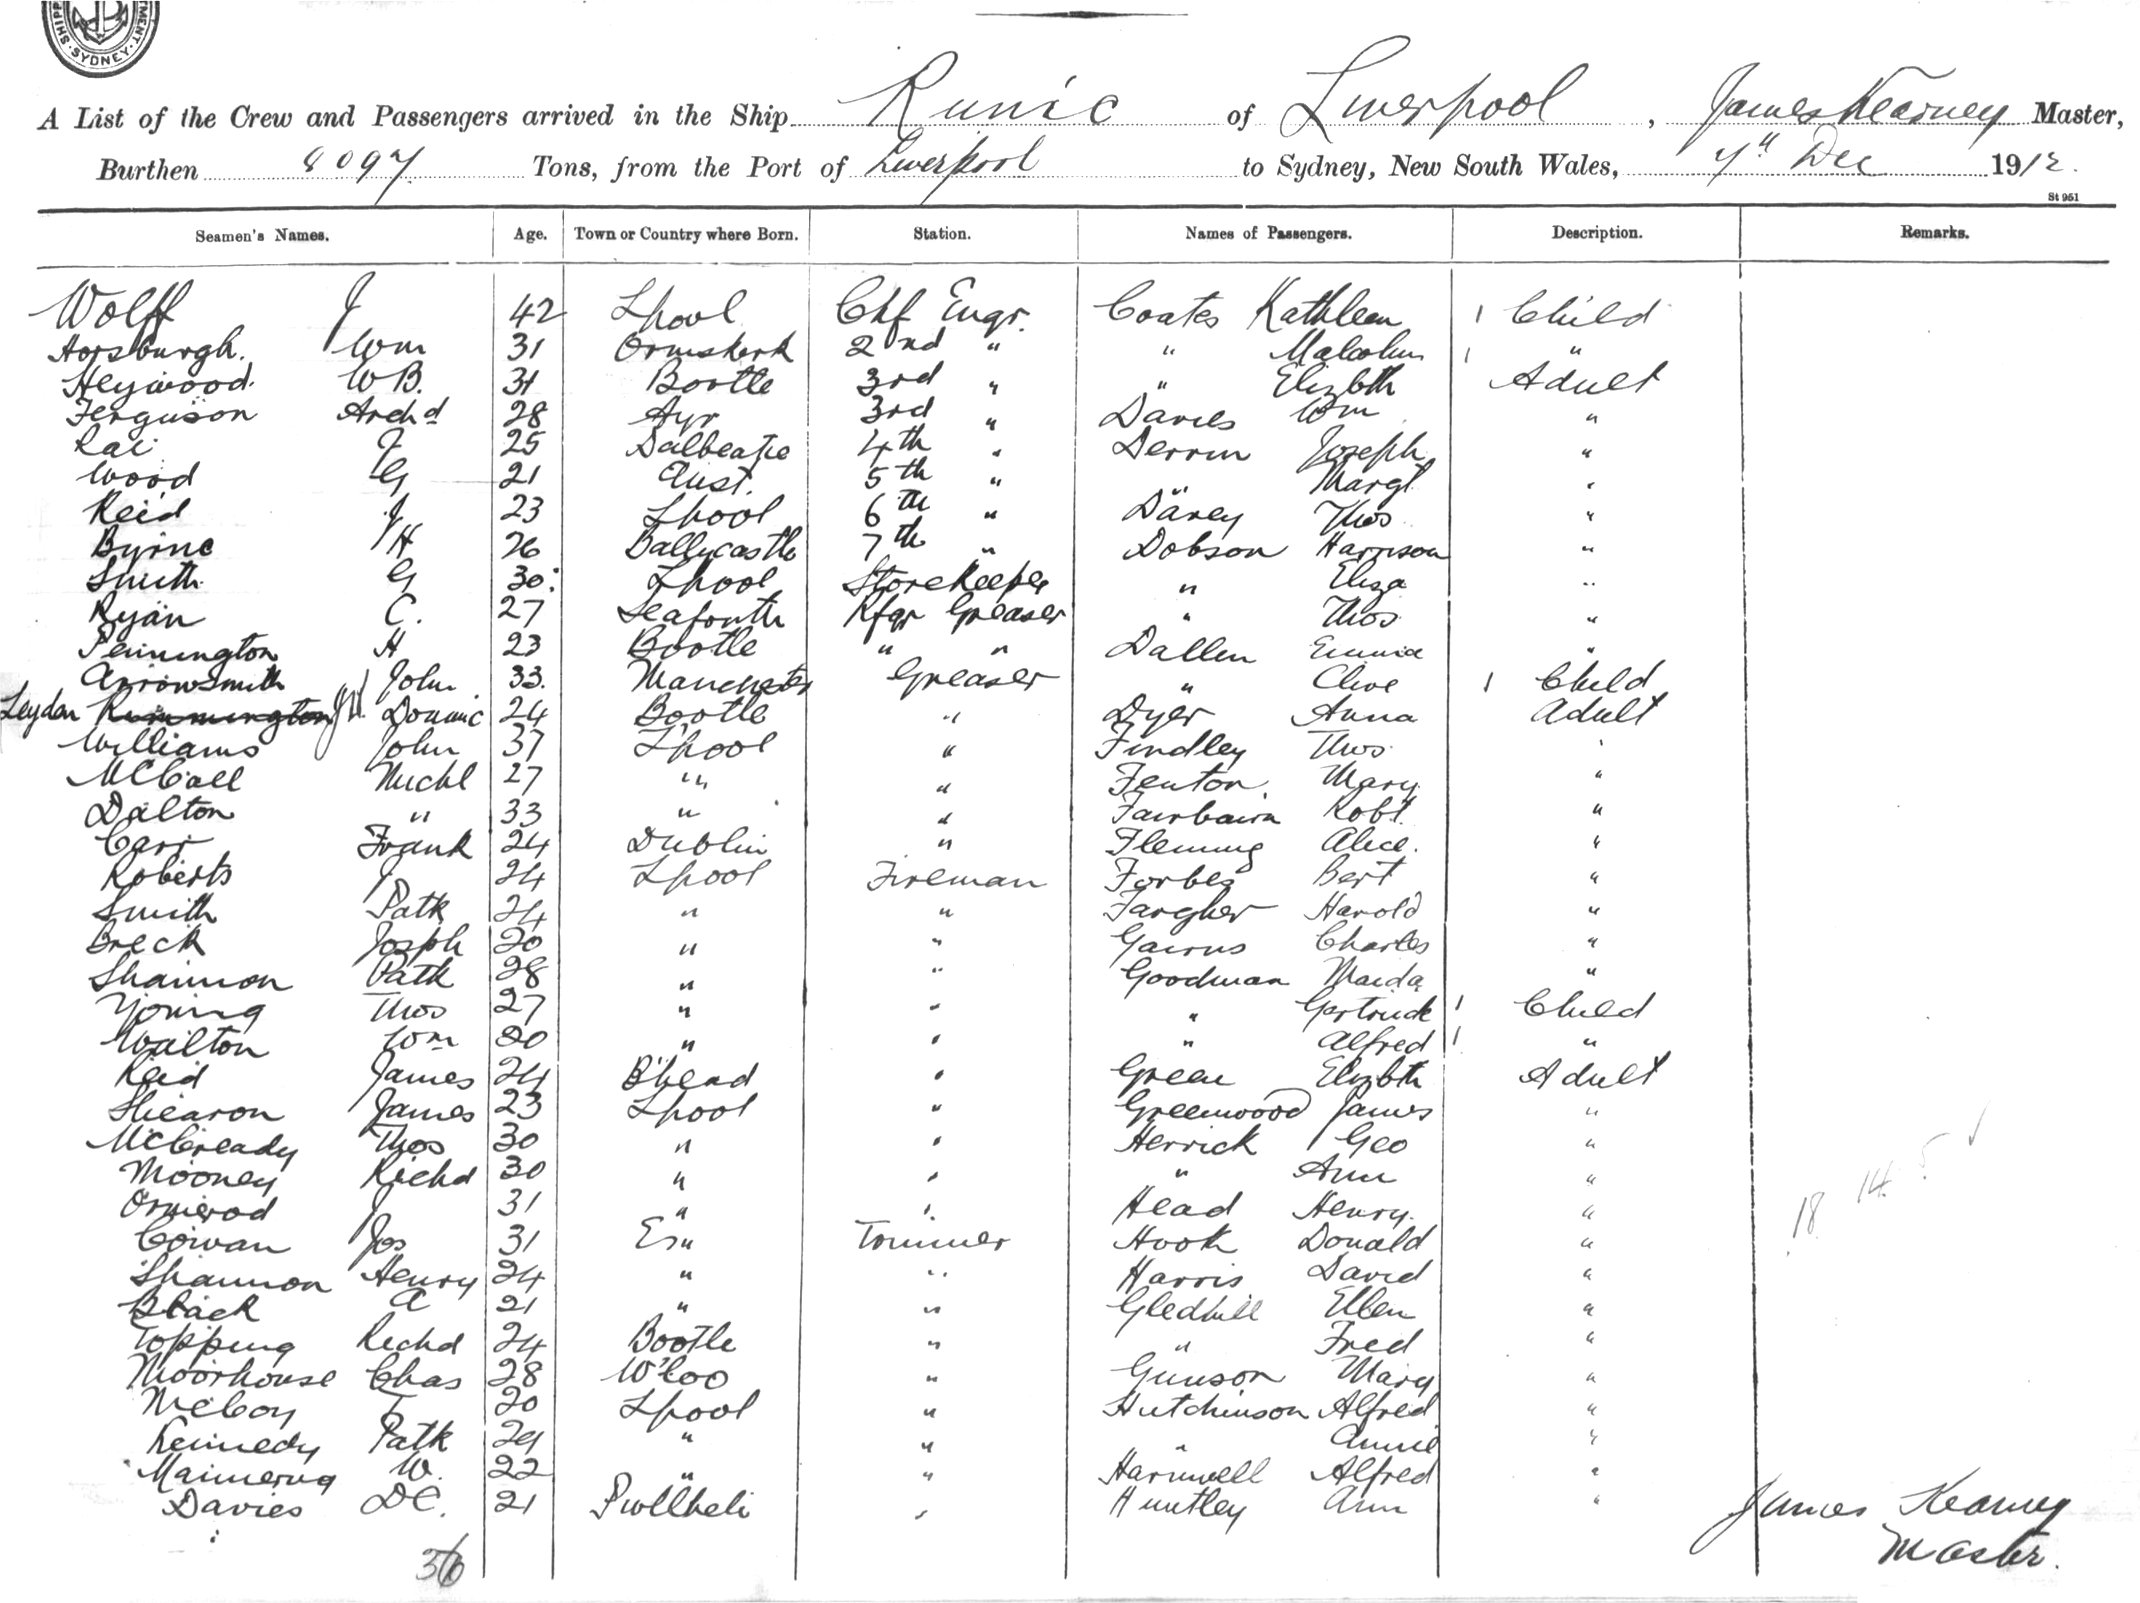 SHIPP MENT · SYDNEY ·
A List of the Crew and Passengers arrived in the Ship Runic of Liverpool, James Kearney Master,
Burthen 8097 Tons, from the Port of Liverpool to Sydney, New South Wales, 7th Dec 1912.
St 951
Seamen's Names. Age. Town or Country where Born. Station. Names of Passengers. Description. Remarks.
Wolff J 42 L'pool Chf Engr. Coates Kathleen 1 Child
Horsburgh. Wm 31 Ormskirk 2nd " " Malcolm 1 "
Heywood. WB. 31 Bootle 3rd " " Elizbth Adult
Ferguson Archd 28 Ayr 3rd " Davies Wm "
Rae J 25 Dalbeatie 4th " Derrin Joseph "
Wood G 21 Aust. 5th " " Margt "
Reid J 23 L'pool 6th " Davey Thos "
Byrne H 26 Ballycastle 7th " Dobson Harrison "
Smith G 30 L'pool Storekeeper " Eliza "
Ryan C. 27 Seaforth Rfgr Greaser " Thos "
Pennington H 23 Bootle " " Dallen Emma "
Arrowsmith John 33. Manchester Greaser " Clive 1 Child
Leydon Rimmington Dominic 24 Bootle " Dyer Anna Adult
Williams John 37 L'pool " Findley Thos "
McCall Michl 27 " " Fenton Mary "
Dalton " 33 " " Fairbairn Robt. "
Carr Frank 24 Dublin " Fleming Alice. "
Roberts J 24 L'pool Fireman Forbes Bert "
Smith Patk 24 " " Fargher Harold "
Breck Joseph 20 " " Gairns Charles "
Shannon Patk 28 " " Goodman Maida "
Young Thos 27 " " " Gertrude 1 Child
Walton Wm 20 " " " Alfred 1 "
Reid James 24 B'head " Green Elizbth Adult
Shearon James 23 L'pool " Greenwood James "
McCready Thos 30 " " Herrick Geo "
Mooney Richd 30 " " " Ann "
Ormerod J 31 " " Head Henry. "
Cowan Jos 31 " Trimmer Hook Donald "
Shannon Henry 24 " " Harris David "
Black A 21 " " Gledhill Ellen "
Topping Richd 24 Bootle " " Fred "
Moorhouse Chas 28 W'loo " Gunson Mary "
McCoy T 20 L'pool " Hutchinson Alfred "
Kennedy Patk 29 " " " Annie "
W. 22 " " Harnwell Alfred "
Davies DC. 21 Pwllheli " Huntley Ann "
18 14 5
James Kearney
Master.
36